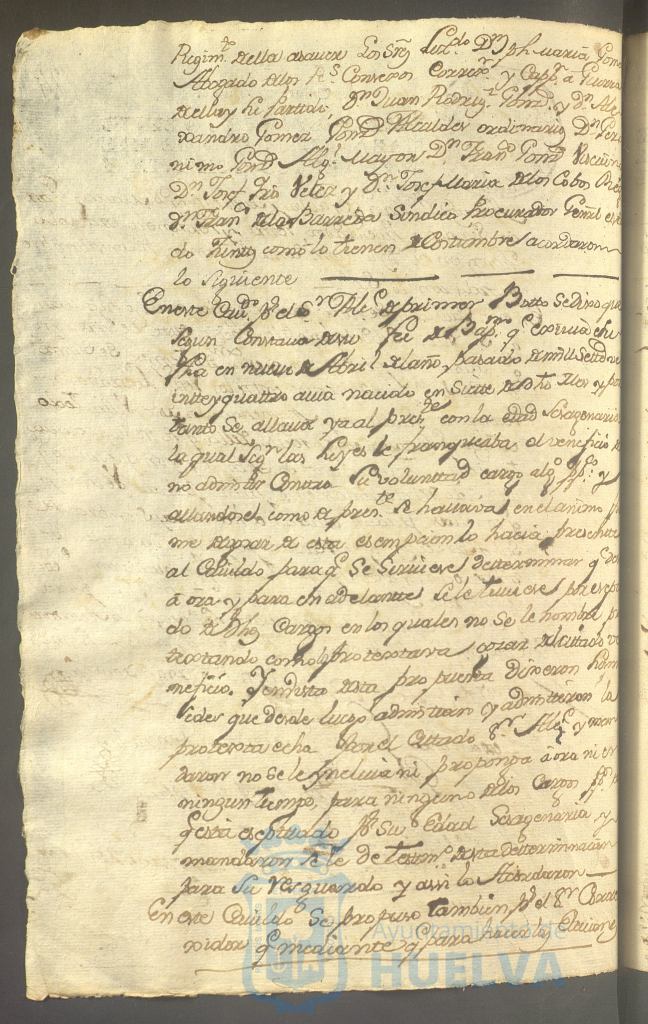 Regim.to della asaver Los Sres Liz.do Dn Jph Maria Gome
Abogado delos Rs Consexos Correx.r y Capn a Guerra
della y su partido, Dn Juan Rodrig.z Gomz y Dn Ale
xandro Gomez Gomz Alcaldes ordinarios Dn Gero
nimo Gomz Alg.l Mayor Dn Franco Gomz
Dn Josef Rio Velez y Dn Josef Maria delos Cobos
Dn Franco dela Barreda Sindico Procurador Genl
do Juntos como lo tienen de Costumbre acordaron
lo siguiente
En este Cavdo pr el Sr Alce de primer Botto se dixo que
segun Constava de su fee de Bapmo qe exivia
fha en nueve de Abril del año pasado de mill setecie
inteyquattro avia nacido en Siette de dho Mes y por
tanto se allava ya al preste con la edad Sexagenaria
la qual segn las Leyes le franqueaba el veneficio de
no admitir Contra su voluntad cargo algo ppco y
allandose como de preste se hallava en el animo fir
me de gozar de esta esempcion lo hacia presente
al Cavildo para qe se sirviese determinar qe
aora y para en adelante se le tuviese por exsep
do de dhos Cargos en los quales no se le nombra pr
textando como lo protextava gozar del citado ve
neficio. Yendista desta propuesta dixeron
sedes que desde luego admitian y admitieron la
protexta echa por el Cittado Sr Alce y man
daron no se le incluia ni proponga aora ni en
ningun tiempo, para ninguno delos Cargos
qe esta exseptuado pr su Edad Sexagenaria, y
mandaron se le de testimo desta determinacion
para su resguardo y assi lo Acordaron
En este Cavildo se propuso tambien pr el Sr Corre
xidor qe mediante qe para hacer las Elecciones
Ayuntamiento de
HUELVA